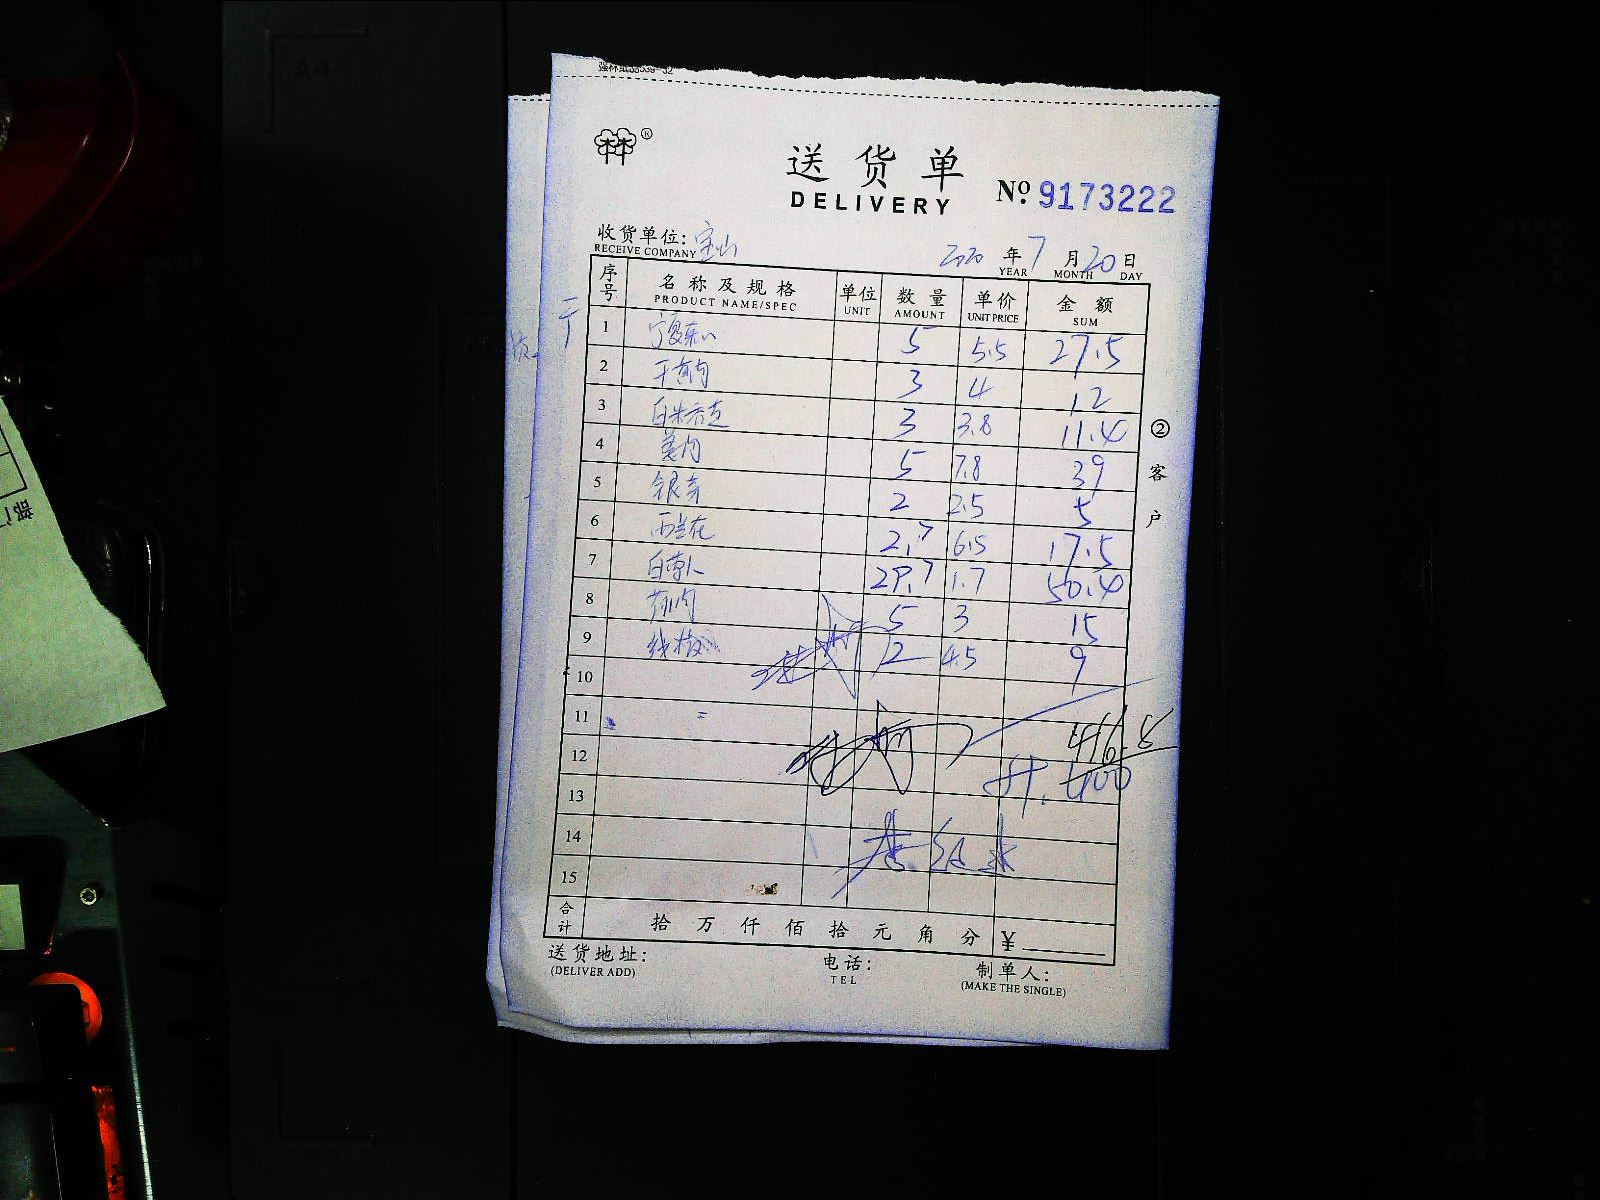 送货单
DELIVERY
No. 9173222
收货单位: 宝山
RECEIVE COMPANY
2020 年 7 月 20 日
YEAR MONTH DAY
序号 名称及规格 单位 数量 单价 金额
PRODUCT NAME/SPEC UNIT AMOUNT UNIT PRICE SUM
1 宁夏菜心 5 5.5 27.5
2 3 4 12
3 3 3.8 11.4
4 姜肉 5 7.8 39
5 银芽 2 2.5 5
6 西兰花 2.7 6.5 17.5
7 白萝卜 29.7 1.7 50.4
8 5 3 15
9 线椒 2 4.5 9
10
11
416.8
12
400
13
14
15
合计 拾 万 仟 佰 拾 元 角 分 ¥
② 客户
送货地址: 电话: 制单人:
(DELIVER ADD) TEL (MAKE THE SINGLE)